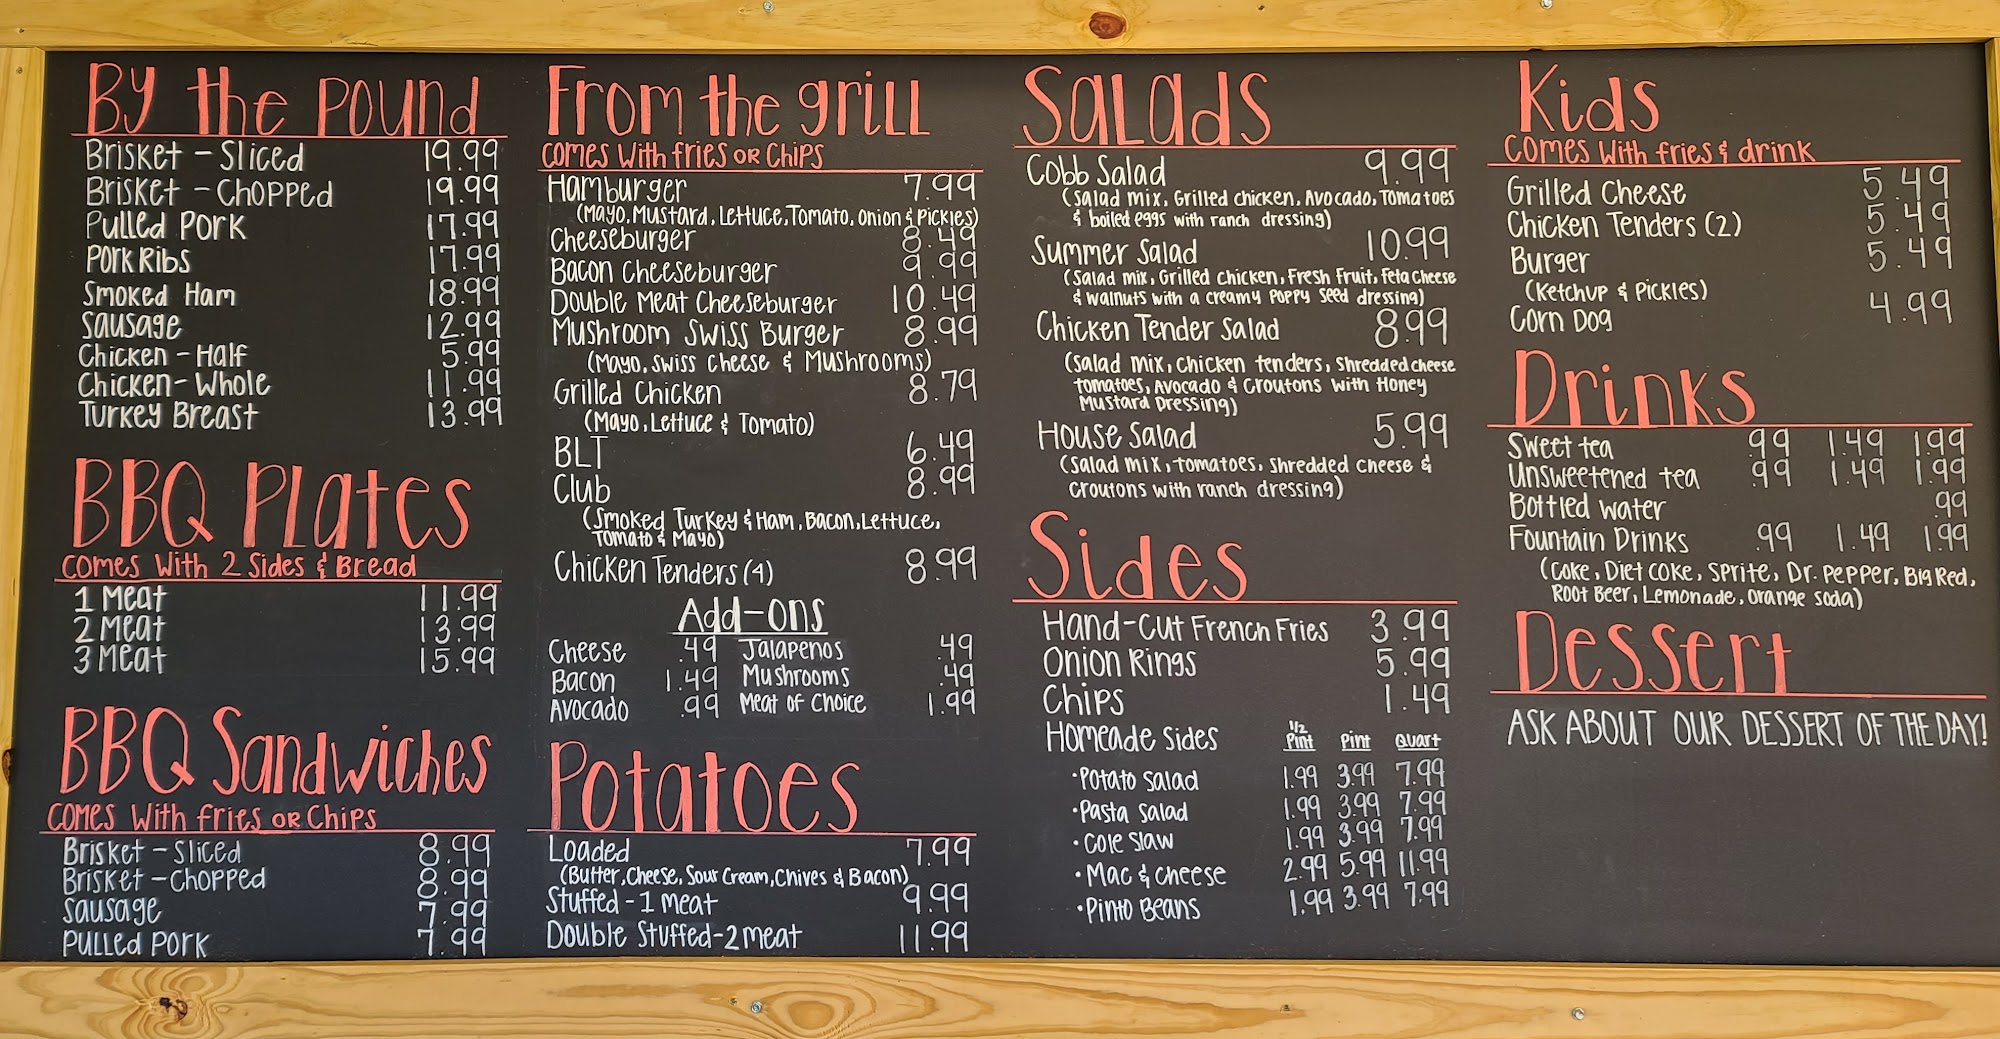 By the Pound
Brisket - Sliced 19.99
Brisket - Chopped 19.99
Pulled Pork 17.99
Pork Ribs 17.99
Smoked Ham 18.99
Sausage 12.99
Chicken - Half 5.99
Chicken - Whole 11.99
Turkey Breast 13.99
BBQ Plates
Comes With 2 Sides & Bread
1 Meat 11.99
2 Meat 13.99
3 Meat 15.99
BBQ Sandwiches
Comes With fries or Chips
Brisket - Sliced 8.99
Brisket - Chopped 8.99
Sausage 7.99
Pulled Pork 7.99
From the grill
Comes With fries or Chips
Hamburger 7.99
(Mayo, Mustard, Lettuce, Tomato, Onion & Pickles)
Cheeseburger 8.49
Bacon Cheeseburger 9.99
Double Meat Cheeseburger 10.49
Mushroom Swiss Burger 8.99
(Mayo, Swiss Cheese & Mushrooms)
Grilled Chicken 8.79
(Mayo, Lettuce & Tomato)
BLT 6.49
Club 8.99
(Smoked Turkey & Ham, Bacon, Lettuce,
Tomato & Mayo)
Chicken Tenders (4) 8.99
Add-ons
Cheese .49 Jalapenos .49
Bacon 1.49 Mushrooms .49
Avocado .99 Meat of Choice 1.99
Potatoes
Loaded 7.99
(Butter, Cheese, Sour Cream, Chives & Bacon)
Stuffed - 1 meat 9.99
Double Stuffed - 2 meat 11.99
Salads
Cobb Salad 9.99
(Salad mix, Grilled chicken, Avocado, Tomatoes
& boiled eggs with ranch dressing)
Summer Salad 10.99
(Salad mix, Grilled chicken, Fresh Fruit, feta cheese
& walnuts with a creamy poppy seed dressing)
Chicken Tender Salad 8.99
(Salad mix, chicken tenders, Shredded cheese
tomatoes, Avocado & Croutons with Honey
Mustard Dressing)
House Salad 5.99
(Salad mix, tomatoes, shredded cheese &
croutons with ranch dressing)
Sides
Hand-Cut French Fries 3.99
Onion Rings 5.99
Chips 1.49
Homeade Sides 1/2 Pint Pint Quart
• Potato Salad 1.99 3.99 7.99
• Pasta Salad 1.99 3.99 7.99
• Cole Slaw 1.99 3.99 7.99
• Mac & cheese 2.99 5.99 11.99
• Pinto Beans 1.99 3.99 7.99
Kids
Comes With fries & drink
Grilled Cheese 5.49
Chicken Tenders (2) 5.49
Burger 5.49
(Ketchup & Pickles)
Corn Dog 4.99
Drinks
Sweet tea .99 1.49 1.99
Unsweetened tea .99 1.49 1.99
Bottled water .99
Fountain Drinks .99 1.49 1.99
(Coke, Diet Coke, Sprite, Dr. Pepper, Big Red,
Root Beer, Lemonade, Orange Soda)
Dessert
ASK ABOUT OUR DESSERT OF THE DAY!